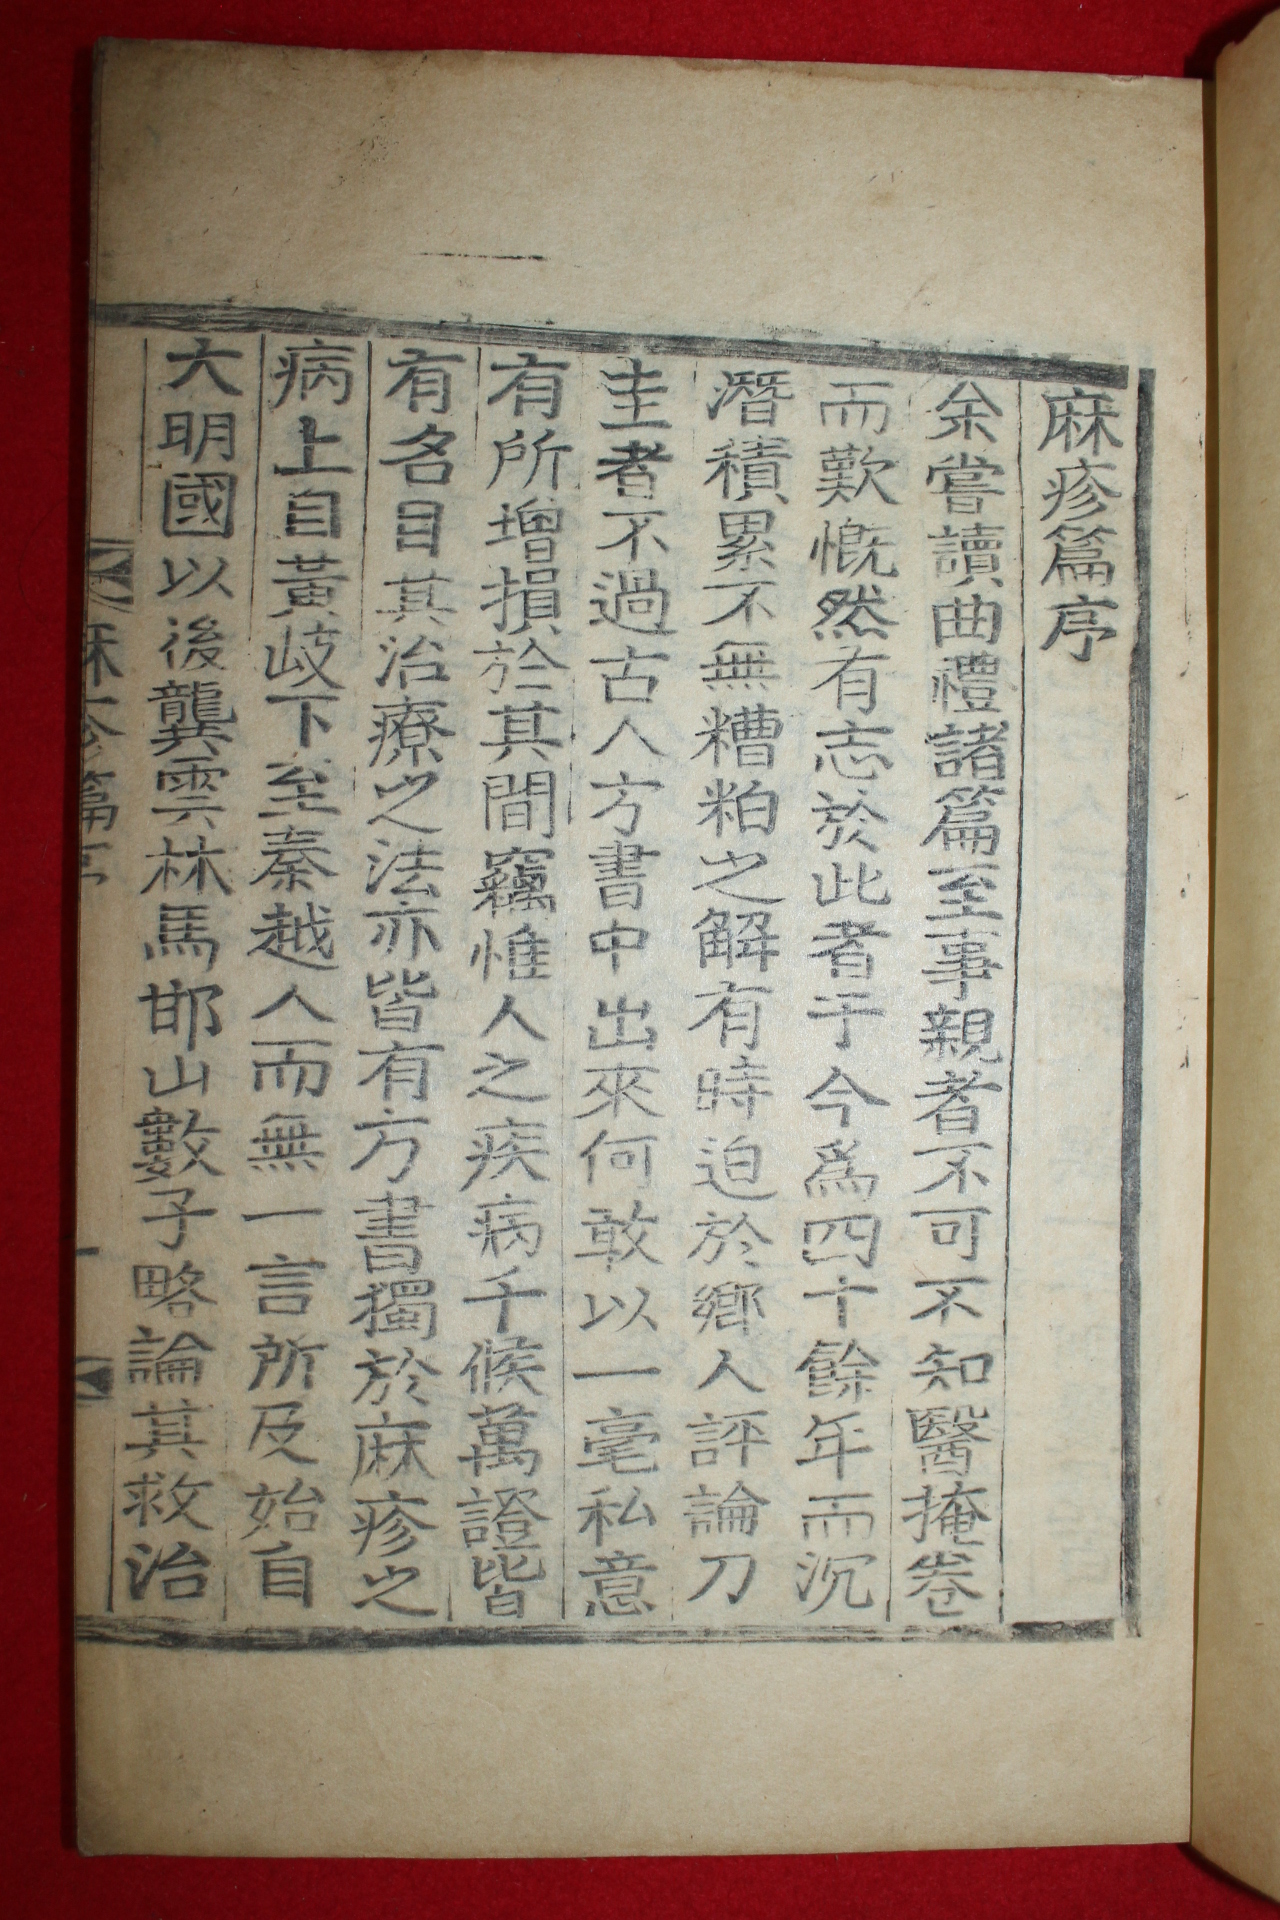 麻疹篇序
余嘗讀曲禮諸篇至事親者不可不知醫掩卷
而歎慨然有志於此者于今爲四十餘年而沉
潛積累不無糟粕之解有時迫於鄉人評論刀
圭者不過古人方書中出來何敢以一毫私意
有所增損於其間竊惟人之疾病千候萬證皆
有名目其治療之法亦皆有方書獨於麻疹之
病上自黃岐下至秦越人而無一言所及始自
大明國以後龔雲林馬邯山數子略論其救治
麻疹篇序 一